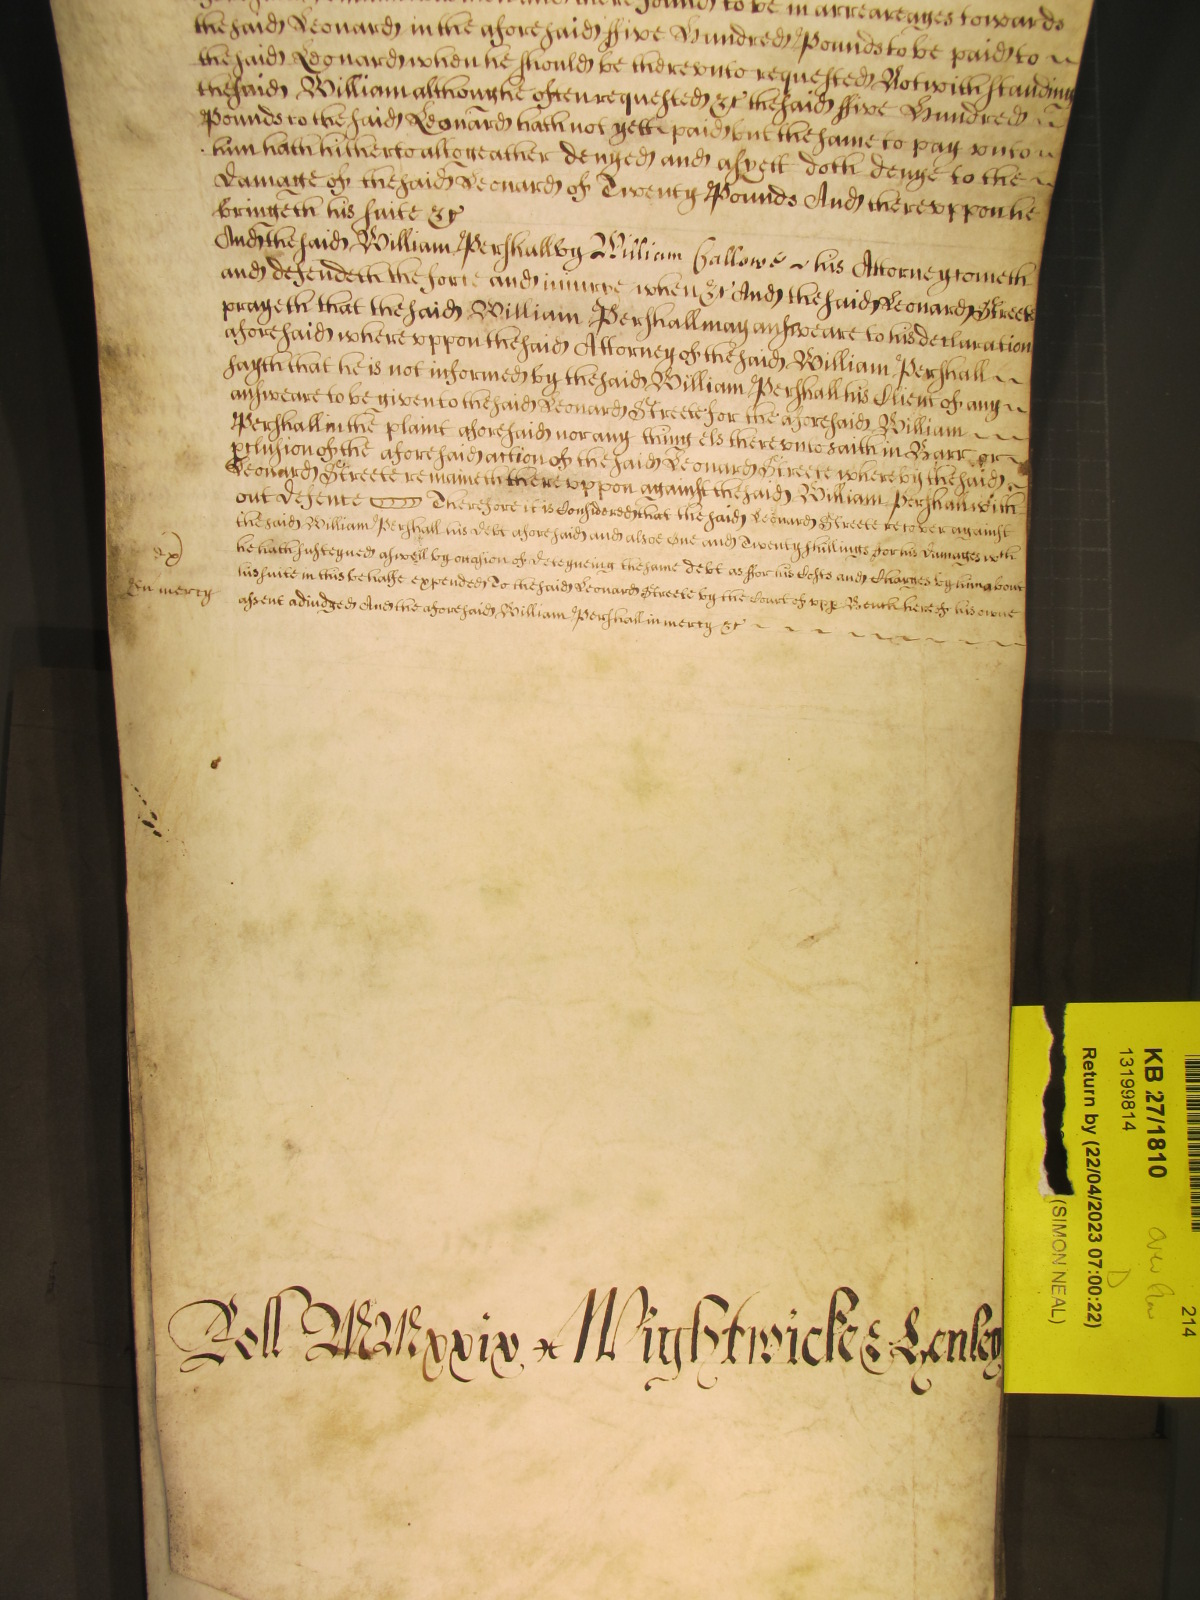 there found to be in arrearages towards
the said Leonard in the aforesaid ffive Hundred Pounds to be paid to
the said Leonard when he should be therevnto requested Notwithstanding
the said William although he often requested &c the said ffive Hundred
Pounds to the said Leonard hath not yett paid but the same to pay vnto
him hath hitherto altogeather denyed and as yett doth denye to the
Damage of the said Leonard of Twenty Pounds And therevppon he
bringeth his suite &c
And the said William Pershall by William Gallowe his Attorney cometh
and defendeth the force and iniurye when &c And the said Leonard Streete
prayeth that the said William Pershall may answeare to his declaration
aforesaid wherevppon the said Attorney of the said William Pershall
sayth that he is not informed by the said William Pershall his Client of any
answeare to be given to the said Leonard Streete for the aforesaid William
Pershall in the plaint aforesaid nor any thing els therevnto saith in Barr or
preclusion of the aforesaid action of the said Leonard Streete whereby the said
Leonard Streete remaineth therevppon against the said William Pershall with
out defence Therefore it is Considered that the said Leonard Streete recover against
the said William Pershall his debt aforesaid and alsoe One and Twenty shillings for his damages wch
he hath susteyned aswell by occasion of deteyneing the same debt as ffor his Costs and Charges by him about
his suite in this behalfe expended To the said Leonard Streete by the Court of vpp Bench here of his owne
assent adiudged And the aforesaid William Pershall in mercy &c
In mercy
Roll MMxxix Wightwicke & Lenley
KB 27/1810
13199814
Return by (22/04/2023 07:00:22)
(SIMON NEAL)
214